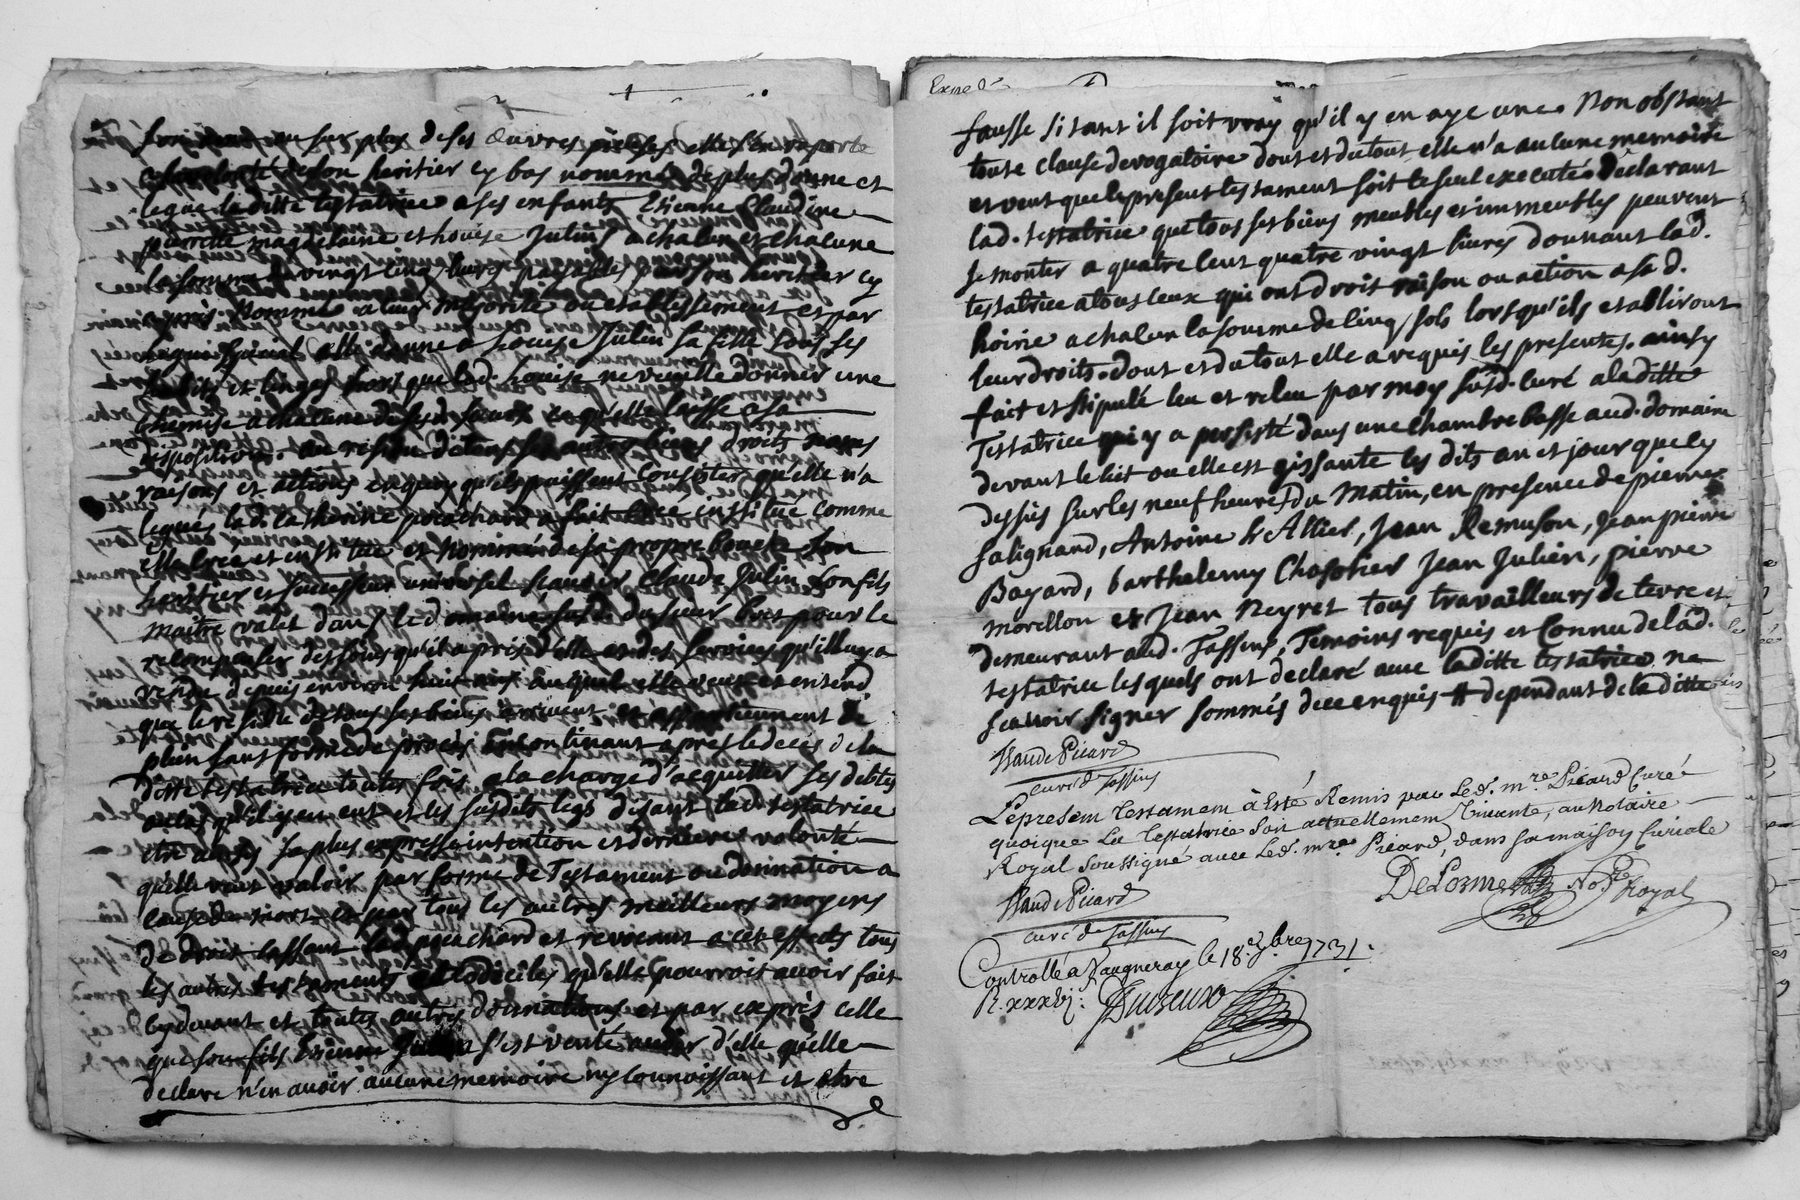 au sur plus de ses Œuvres pieuses elle s'en raporte
a la volonté de son heritier cy bas nommé de plus donne et
legue laditte testatrice a ses enfants Etienne Claudine
pierrette magdelaine et Louise Julins a chalun et chalune
la somme de vingt cinq livres payables par son heritier cy
apres Nommé a leur majorité ou etablissement et par
elle donne a Louise Julin sa fille tous ses
habits et linges hors que lad. Louise ne veuille donner une
chemise a chalune de ses d. sœurs laisse a sa
disposition. au residu de tous ses autres biens droits noms
raisons et actions en quoy qu'ils puissent Consister qu'elle n'a
legués lad. Catherine pouchard a fait Créé institue comme
elle Crée et institue et Nommé de sa propre bouche son
heritier et successeur universel sçavoir Claude Julin son fils
maitre valet dans le domaine susd. du sieur bret pour le
recompenser des soins qu'il a pris d'elle et des services qu'il luy a
rendu depuis environ huit auquel elle veut et entend
que le residu de tous ses biens arrivent et appartiennent de
plein sans forme de procès incontinant apres le deces de la
ditte testatrice toutes fois a la charge d'acquitter ses debtes
au cas qu'il y en eut et les susdits legs disant lad. testatrice
etre ainsy sa plus expresse intention et derniere volonté
qu'elle veut valoir par forme de Testament ou donnation a
cause de mort et par tous les autres meilleurs moyens
de droit cassant lad. pouchard et revocant a cet effects tous
les autres testaments et codiciles qu'elle pourroit avoir fait
cydevant et toutes autres donnations et par exprès celle
que son fils Etienne Julin s'est venté avoir d'elle qu'elle
declare n'en avoir aucune memoire ny connoissant et etre
Expe
fausse si tant il soit vray qu'il y en aye une Non obstant
toute clause derogatoire dont et du tout elle n'a aulune memoire
et veut que le present testament soit le seul executé déclarant
lad. testatrice que tous ses biens meubles et immeubles peuvent
se monter a quatre cent quatre vingt livres donnant lad.
testatrice a tous ceux qui ont droit raison ou action a sa d.
hoirie a chalun la somme de cinq sols lorsqu'ils etabliront
leur droits. dont et du tout elle a requis les presentes. ainsy
fait et stipulé leu et releu par moy susd. curé a laditte
Testatrice qui y a persisté dans une chambre basse aud. domaine
devant le lit ou elle est gissante les dits an et jour que cy
dessus sur les neuf heures du Matin, en presence de pierre
Salignand, Antoine L'Allier, Jean Remuson, Jean pierre
Bayard, barthelemy Chapotier Jean Julien, pierre
morellon et Jean Neyret tous travailleurs de terre et
demeurant aud. Tassins, Temoins requis et Connu de lad.
testatrice les quels ont declaré avec laditte testatrice ne
scavoir signer sommés de ce enquis # dependant de laditte
Claude Picard
curé de Tassins
Le present Testament à Esté Remis par Led. mre Picard Curé
quoique La Testatrice soit actuellement Vivante, au Notaire
Royal soussigné avec Led. mre Picard, dans sa maison Curiale
Claude Picard
DeLorme Nore Royal
curé de Tassins
Controllé a Vaugneray le 18e xbre 1731.
R. xxxvj s.